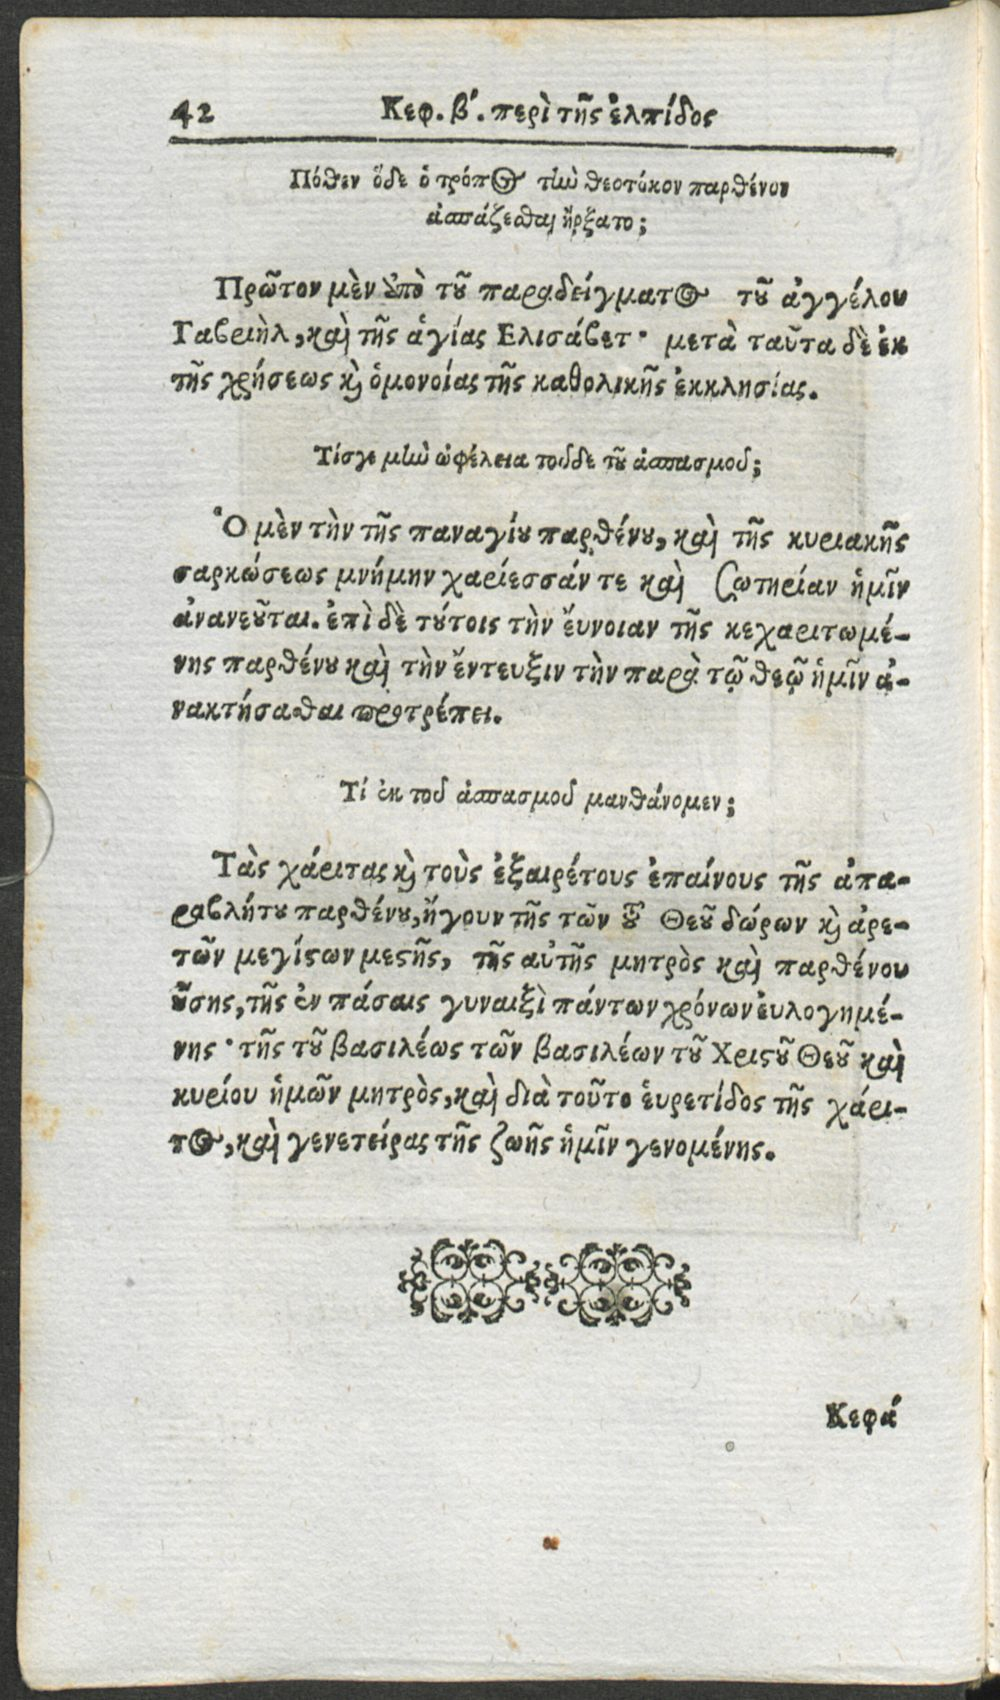 42 Κεφ. β′. περὶ τῆς ἐλπίδος
Πόθεν ὅδε ὁ τρόπος τὴν θεοτόκον παρθένον
ἀσπάζεσθαι ἤρξατο;
Πρῶτον μὲν ὑπὸ τοῦ παραδείγματος τοῦ ἀγγέλου
Γαβριὴλ, καὶ τῆς ἁγίας Ελισάβετ· μετὰ ταῦτα δὲ ἐκ
τῆς χρήσεως καὶ ὁμονοίας τῆς καθολικῆς ἐκκλησίας.
Τίσγε μὴν ὠφέλεια τοῦδε τοῦ ἀσπασμοῦ;
Ὁ μὲν τὴν τῆς παναγίου παρθένου, καὶ τῆς κυριακῆς
σαρκώσεως μνήμην χαρίεσσάν τε καὶ σωτηρίαν ἡμῖν
ἀνανεοῦται. ἐπὶ δὲ τούτοις τὴν ἔυνοιαν τῆς κεχαριτωμέ-
νης παρθένου καὶ τὴν ἔντευξιν τὴν παρὰ τῷ θεῷ ἡμῖν ἀ-
νακτήσασθαι προτρέπει.
Τί ἐκ τοῦ ἀσπασμοῦ μανθάνομεν;
Τὰς χάριτας καὶ τοὺς ἐξαιρέτους ἐπαίνους τῆς ἀπα-
ραβλήτου παρθένου, ἤγουν τῆς τῶν τοῦ Θεοῦ δώρων καὶ ἀρε-
τῶν μεγίστων μεστῆς, τῆς αὐτῆς μητρὸς καὶ παρθένου
οὔσης, τῆς ἐν πάσαις γυναιξὶ πάντων χρόνων ἐυλογημέ-
νης· τῆς τοῦ βασιλέως τῶν βασιλέων τοῦ Χριστοῦ Θεοῦ καὶ
κυρίου ἡμῶν μητρὸς, καὶ διὰ τοῦτο ἑυρετίδος τῆς χάρι-
τος, καὶ γενετείρας τῆς ζωῆς ἡμῖν γενομένης.
Κεφά